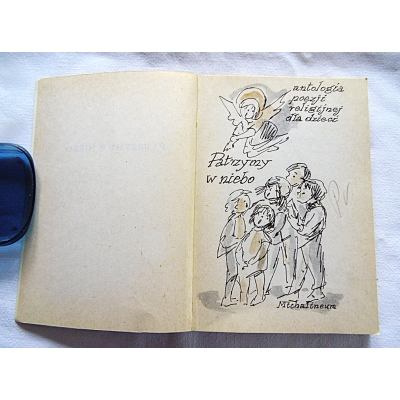 antologia
poezji
religijnej
dla dzieci
Patrzymy
w niebo
Michalineum